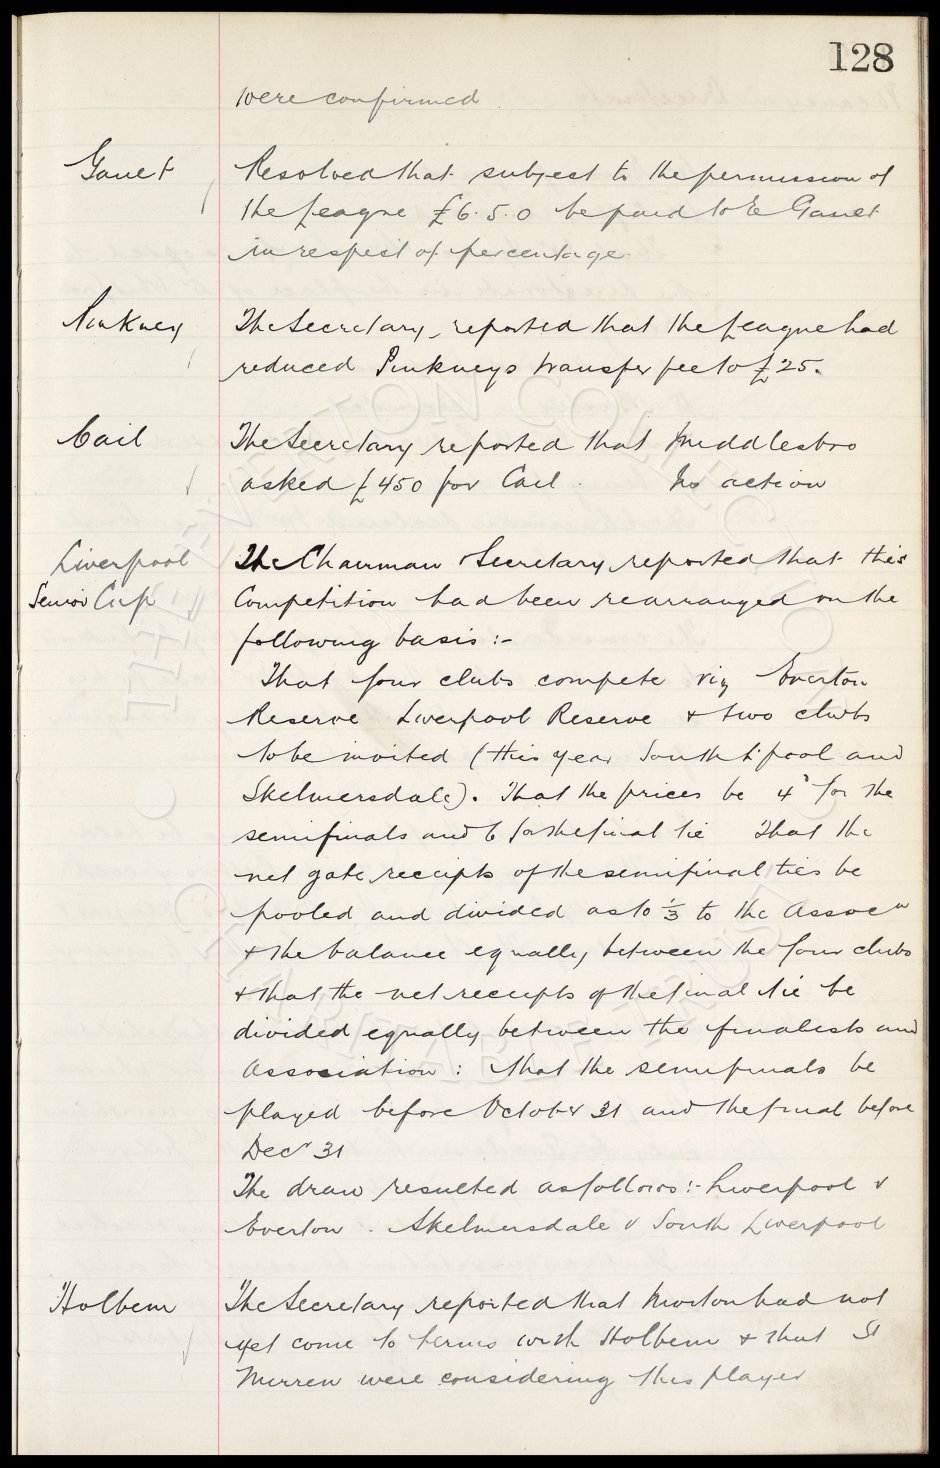 128
were confirmed
Gault Resolved that subject to the permission of
the League £6.5.0 be paid to E Gault
in respect of percentage.
Pinkney The Secretary reported that the League had
reduced Pinkneys transfer fee to £25.
Cail The Secretary reported that Middlesbro
asked £450 for Cail. No action
Liverpool The Chairman Secretary reported that this
Senior Cup Competition had been rearranged on the
following basis :-
That four clubs compete viz Everton
Reserve Liverpool Reserve & two clubs
to be invited (this year South L'pool and
Skelmersdale). That the prices be 4d for the
semifinals and 6 for the final tie That the
net gate receipts of the semifinal ties be
pooled and divided as to 1/3 to the Assocn
& the balance equally between the four clubs
& that the net receipts of the final tie be
divided equally between the finalists and
Association : that the semifinals be
played before October 31 and the final before
Decr 31
The draw resulted as follows :- Liverpool v
Everton. Skelmersdale v South Liverpool
Holbem The Secretary reported that Morton had not
yet come to terms with Holbem & that St
Mirren were considering this player